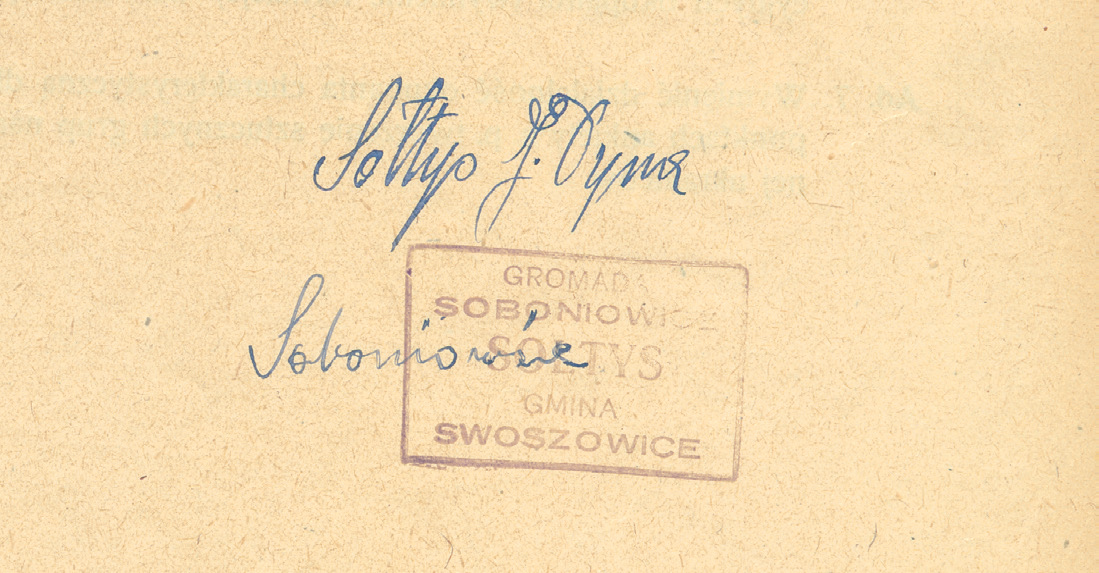 Sołtys J. Dyna
GROMADA
SOBONIOWICE
Soboniowice
SOŁTYS
GMINA
SWOSZOWICE